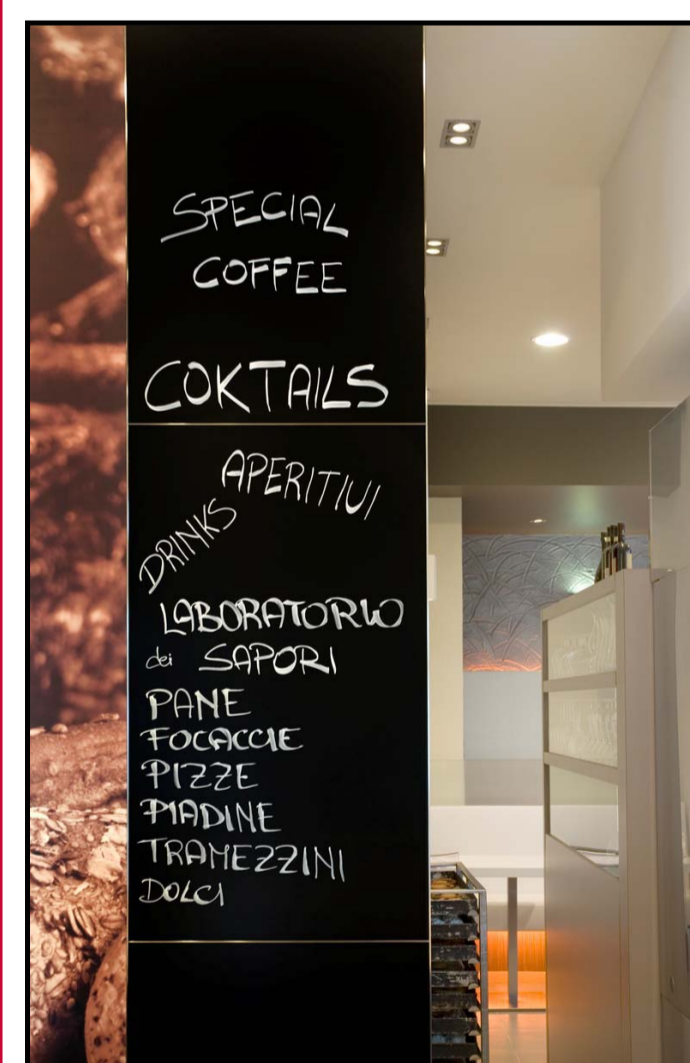 SPECIAL
COFFEE
COKTAILS
APERITIVI
DRINKS
LABORATORIO
dei SAPORI
PANE
FOCACCIE
PIZZE
PIADINE
TRAMEZZINI
DOLCI